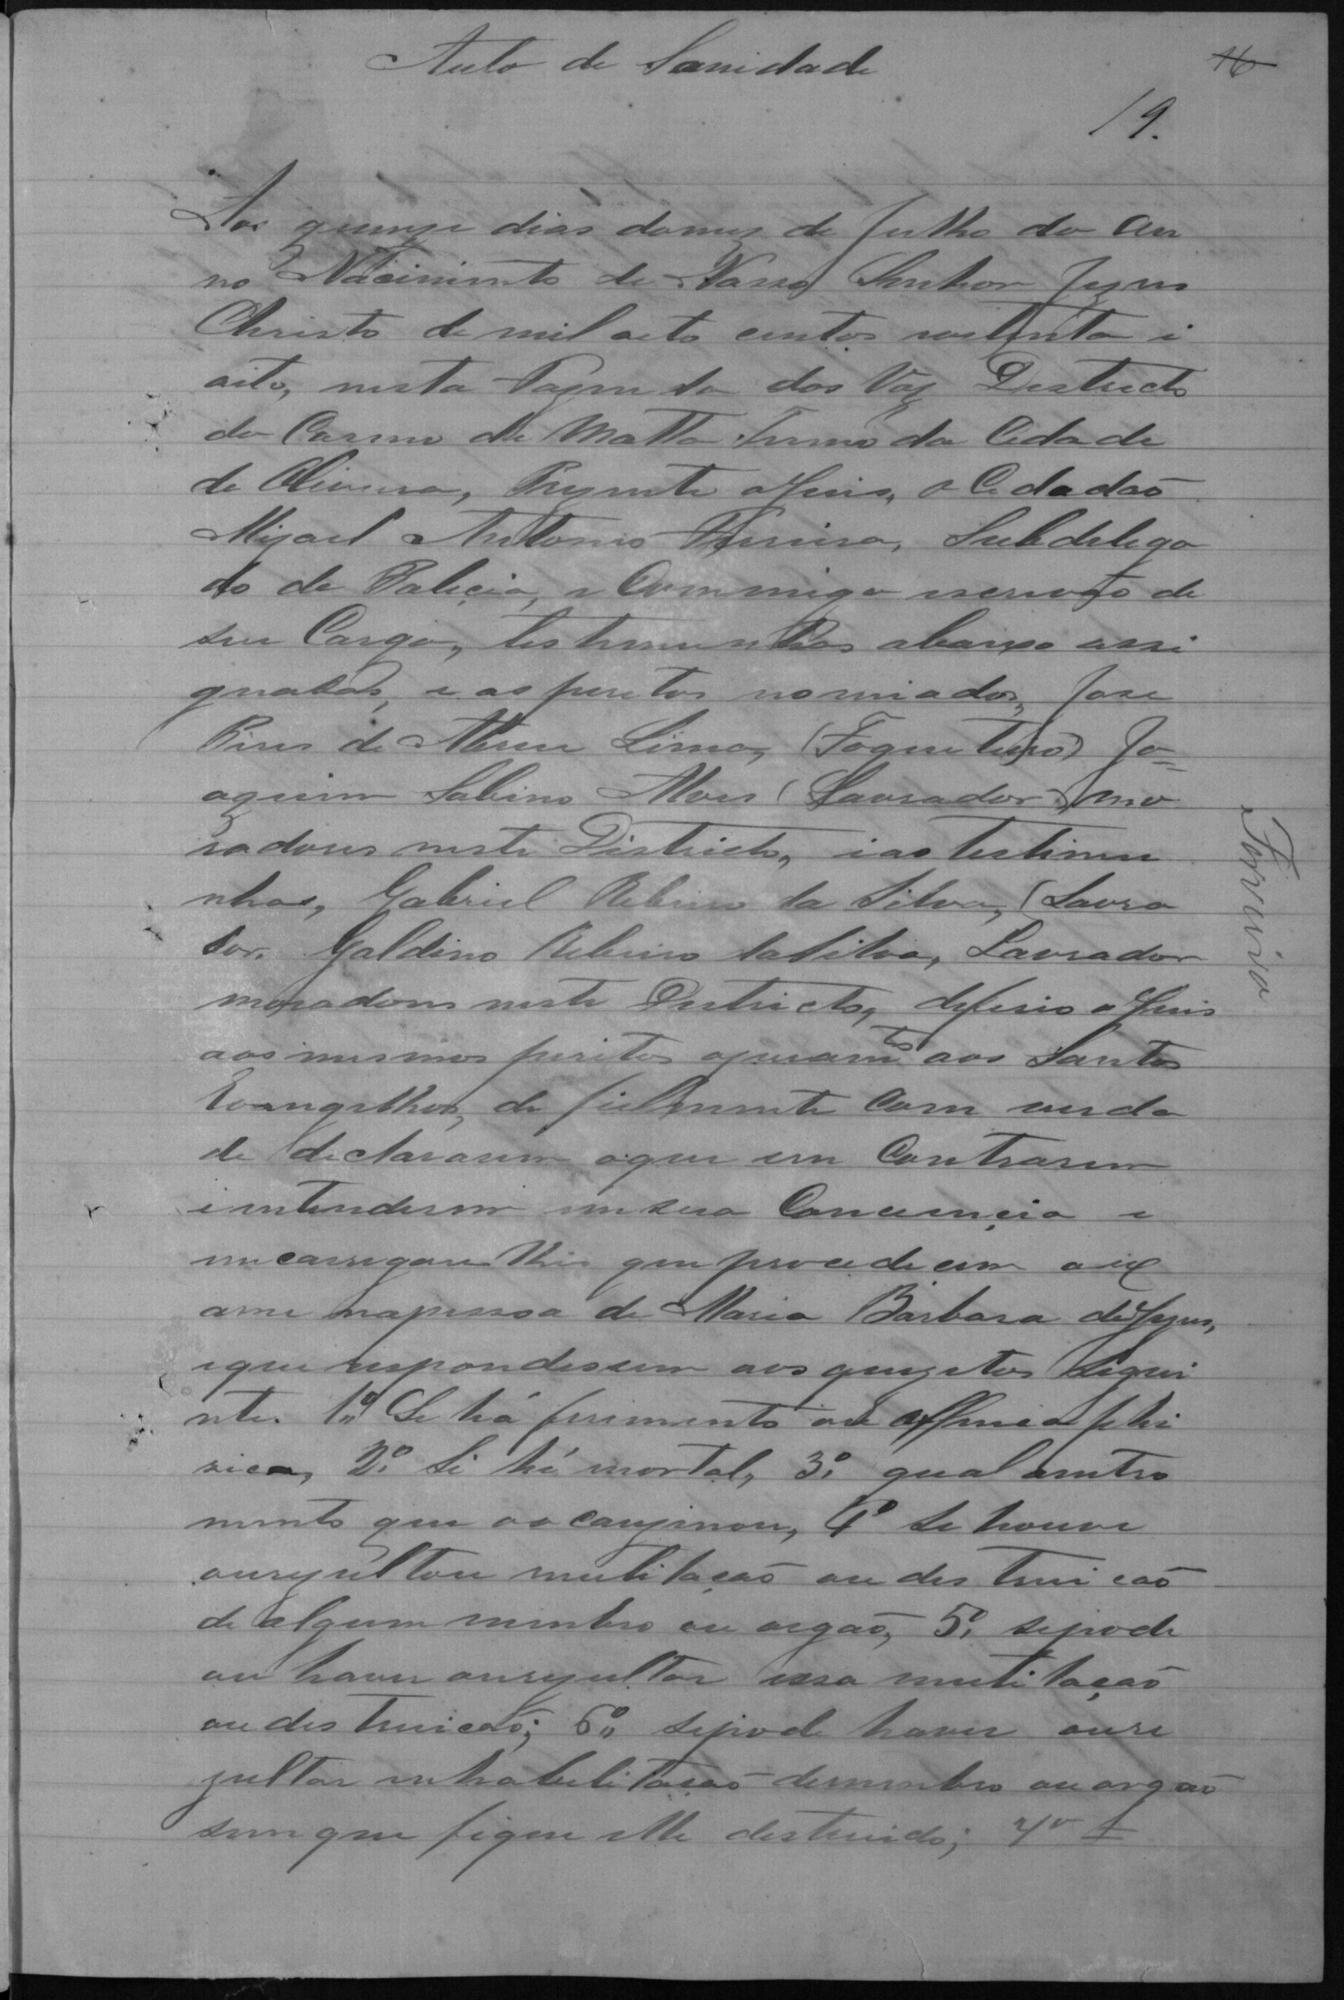 Auto de Sanidade
16
19.
Aos quinze dias domez de Julho do An
no Nacimento de Nosso Senhor Jezus
Christo de mil oito centos oitenta i
oito, nesta Fazenda dos Vaz Destricto
do Carmo da Matta Termo da Cidade
de Oliveira, Prezente o Juis, o Cidadaõ
Mizael Antonio Ferreira, Subdelega
do de Policia, e Commigo escrivaõ de
seu Cargo, testemunhas abaixo assi
gnadas, e os peritos nomiados, Jose
Pires de Abreu Lima, (Fogueteiro) Jo=
aquim Sabino Alves (Lavrador) mo
radores neste Districto, i as testimu
nhas, Gabriel Ribeiro da Silva, (Lavra
dor. Galdino Ribeiro da Silva, Lavrador
moradores neste Destricto, deferio o Juis
aos mesmos peritos ojuram.to aos Santos
Evangelhos, de fielmente com verda
de declararem oque em Contrarem
i entenderem em sua Conciençia e
emcarregou lhes que procedecem a ex
ame napessoa de Maria Barbara de Jezus,
eque respondessem aos quezetos Segui
nte. 1º Se há ferimento ou offença phi
zica, 2º Si hé mortal, 3º qual enstro
mento que os cauzinou, 4º Se houve
ourezultou mutilaçaõ ou destruicaõ
de algum membro ou orgaõ, 5º sepode
ou haver ourezultar essa mutilaçaõ
ou destruicaõ; 6º sepode haver oure
zultar enhabelitaçaõ demembro ou orgaõ
semque fique elle destruido; 7º
Ferreira